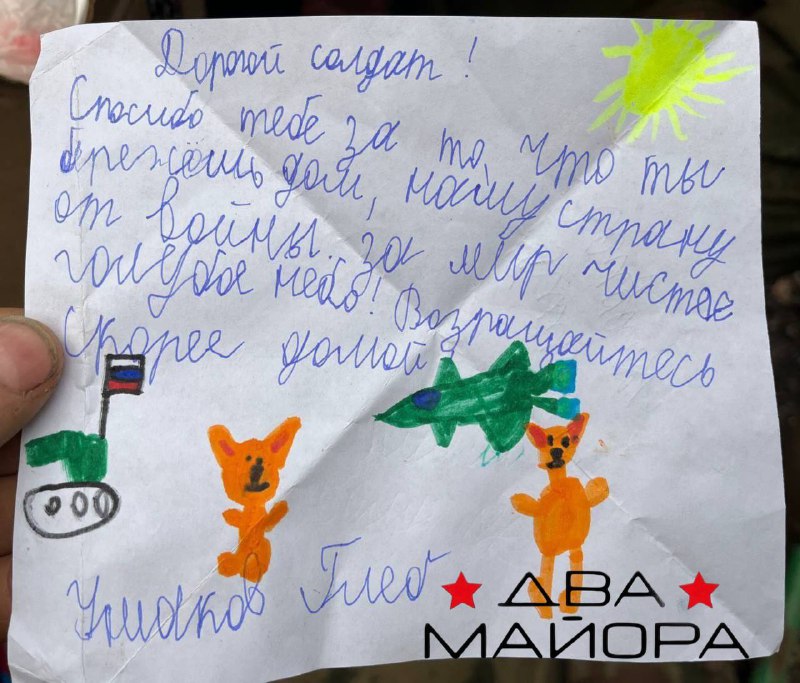 Дорогой солдат!
Спосибо тебе за то, что ты
бережошь дом, нашу страну
от войны. за мир чистае
голубое небо! Возращайтесь
скорее домой!
Ушаков Глеб
ДВА
МАЙОРА